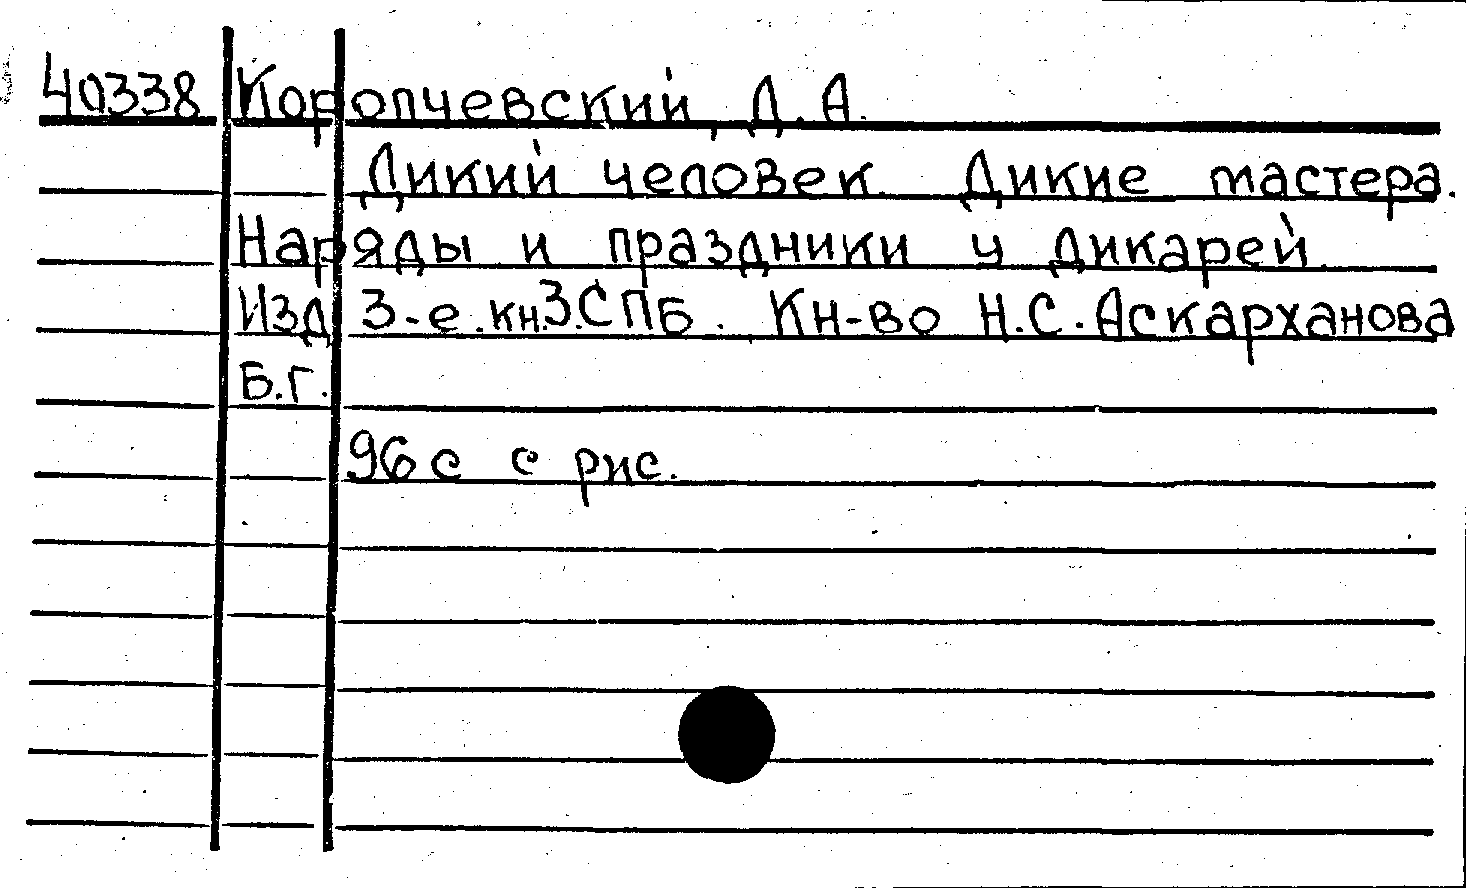 40338 Коропчевский, Д. А.
Дикий человек. Дикие мастера.
Наряды и праздники у дикарей.
Изд. 3-е. кн.3. СПБ. Кн-во Н.С. Аскарханова
Б.г.
96 с с рис.